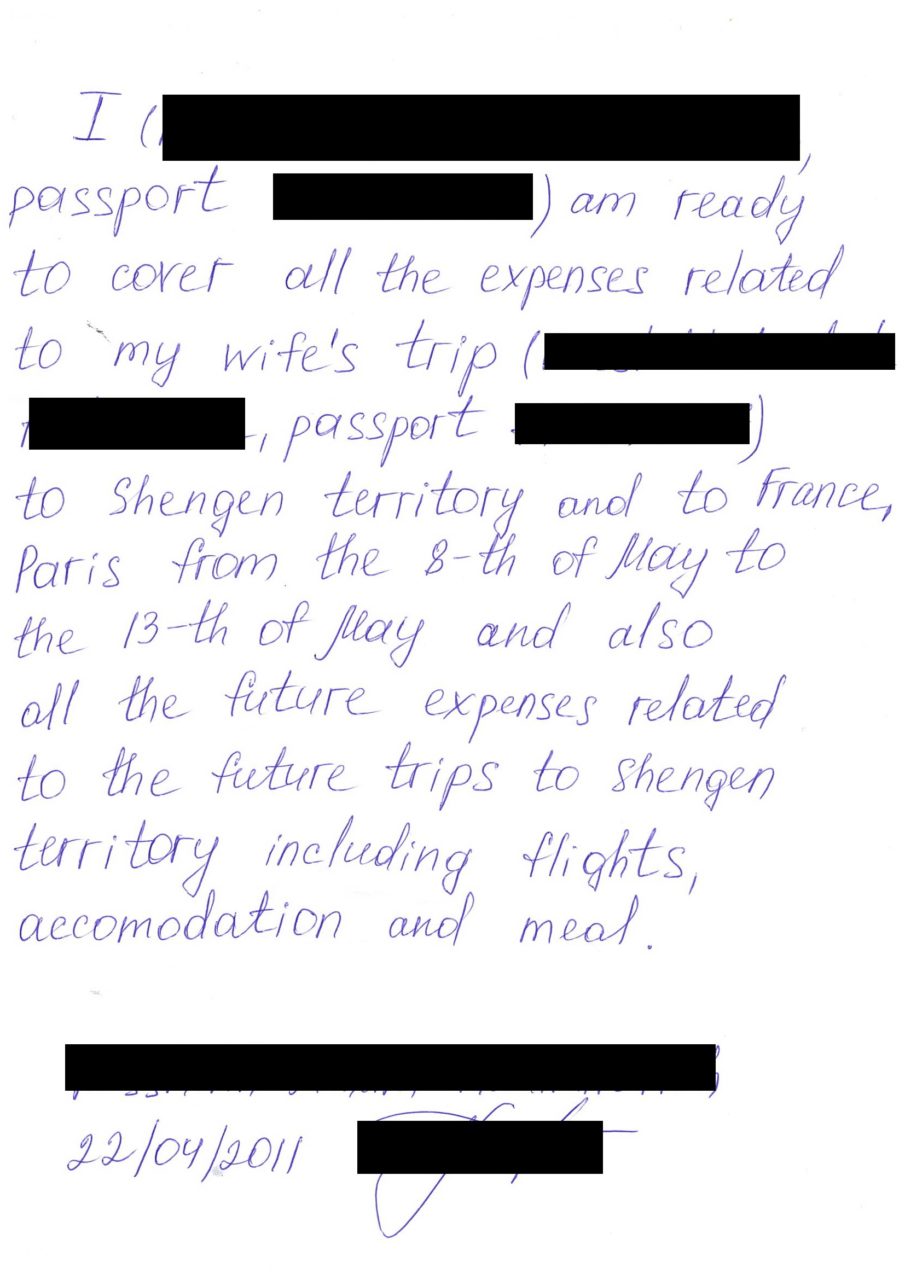 I (
passport ) am ready
to cover all the expenses related
to my wife's trip (
, passport )
to Shengen territory and to France,
Paris from the 8-th of May to
the 13-th of May and also
all the future expenses related
to the future trips to Shengen
territory including flights,
accomodation and meal.
22/04/2011